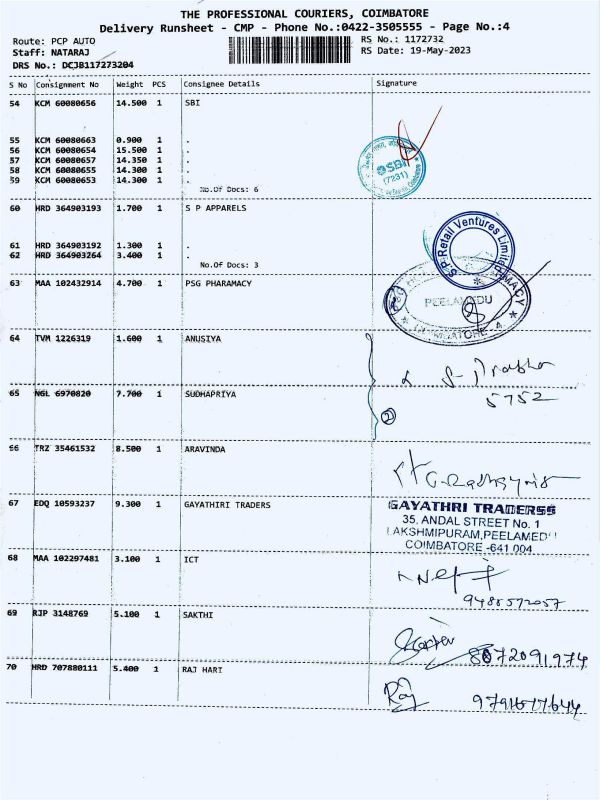 THE PROFESSIONAL COURIERS, COIMBATORE
Delivery Runsheet - CMP - Phone No.:0422-3505555 - Page No.:4
Route: PCP AUTO
Staff: NATARAJ
DRS No.: DCJB117273204
RS No.: 1172732
RS Date: 19-May-2023
S No Consignment No Weight PCS Consignee Details Signature
54 KCM 60080656 14.500 1 SBI
55 KCM 60080663 0.900 1 .
56 KCM 60080654 15.500 1 .
57 KCM 60080657 14.350 1 .
58 KCM 60080655 14.300 1 .
59 KCM 60080653 14.300 1 .
No.Of Docs: 6
SBI
(7231)
60 HRD 364903193 1.700 1 S P APPARELS
61 HRD 364903192 1.300 1 .
62 HRD 364903264 3.400 1 .
No.Of Docs: 3
S.P.Retail Ventures Limited
63 MAA 102432914 4.700 1 PSG PHARAMACY
PEELAMEDU
COIMBATORE - 4
64 TVM 1226319 1.600 1 ANUSIYA
5752
65 NGL 6970820 7.700 1 SUDHAPRIYA
2
66 TRZ 35461532 8.500 1 ARAVINDA
67 EDQ 10593237 9.300 1 GAYATHIRI TRADERS
GAYATHRI TRADERSS
35, ANDAL STREET No. 1
LAKSHMIPURAM, PEELAMEDU
COIMBATORE -641 004
68 MAA 102297481 3.100 1 ICT
9486572057
69 RJP 3148769 5.100 1 SAKTHI
8072091974
70 HRD 707880111 5.400 1 RAJ HARI
Raj
9791677644